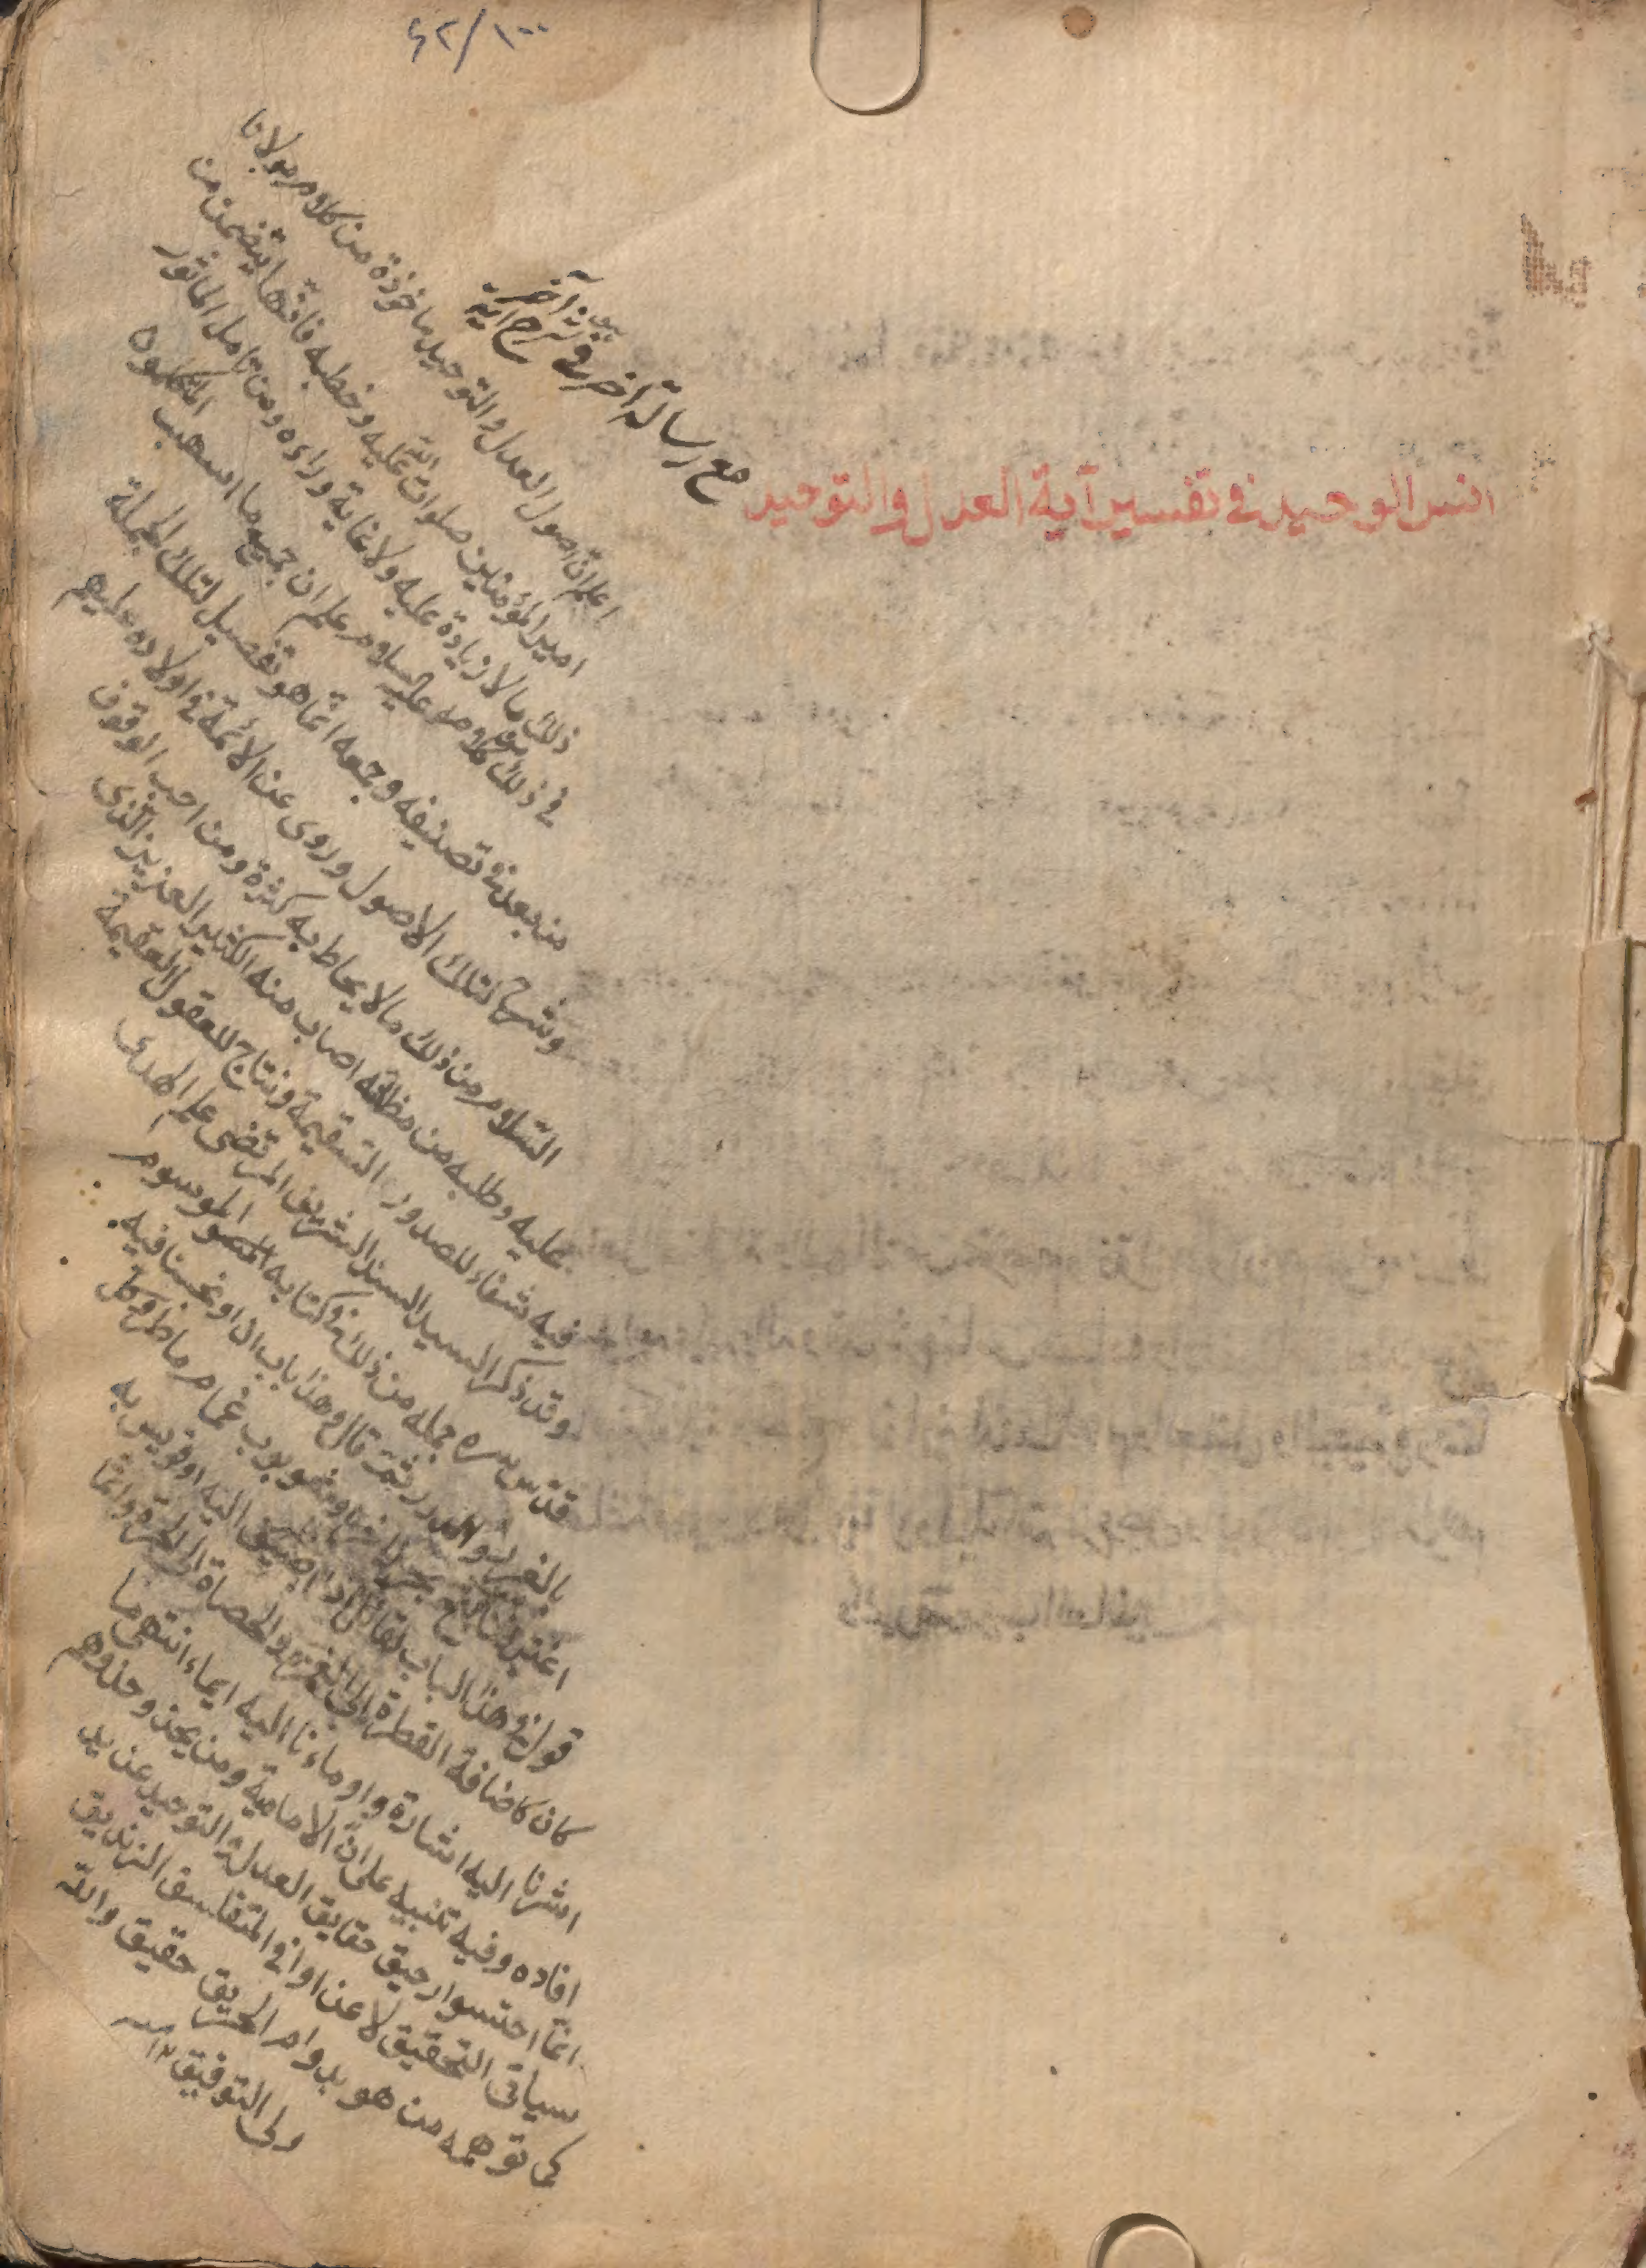 ٤٢/١٠٠
انس الوحيد في تفسير آية العدل والتوحيد
مع رسالة أخر في شرح آية
اعلم ان اصول العدل والتوحيد ماخوذة من كلام مولانا
امير المؤمنين صلوات الله عليه وخطبه فانها يتضمن من
ذلك ما لا زيادة عليه ولا غاية وراءه ومن تامل الماثور
في ذلك من كلامه عليه السلام علم ان جميع ما اسهب المتكلمون
من بعد في تصنيفه وجمعه انما هو تفصيل لتلك الجملة
وشرح لتلك الاصول وروى عن الائمة في اولاده عليهم
السلام من ذلك ما لا يحاط به كثرة ومن احب الوقوف
عليه وطلبه من مظانه اصاب منه الكثير العزيز الذي
فيه شفاء للصدور السقيمة ونتاج للعقول العقيمة
وقد ذكر السيد السند الشريف المرتضى علم الهدى
قدس سره جملة من ذلك في كتابه الموسوم
بالغرر والدرر ثم قال وهذا باب ان ولجنا فيه
اغترفنا من بحر زاخر او شؤبوب غمام ماطر وكل
قول في هذا الباب لقائل اذا اضيف اليه او قويس به
كان كاضافة القطرة الى الغمرة والحصاة الى الحرة وانما
اشرنا اليه اشارة واومأنا اليه ايماء انتهى ما
افاده وفيه تنبيه على ان الامامية ومن يحذو حذوهم
انما احتسوا رحيق حقايق العدل والتوحيد عن يد
ساقي التحقيق لا عن اواني المتفلسف الزنديق
كما توهمه من هو بدوام الحريق حقيق والله
ولي التوفيق ١٢